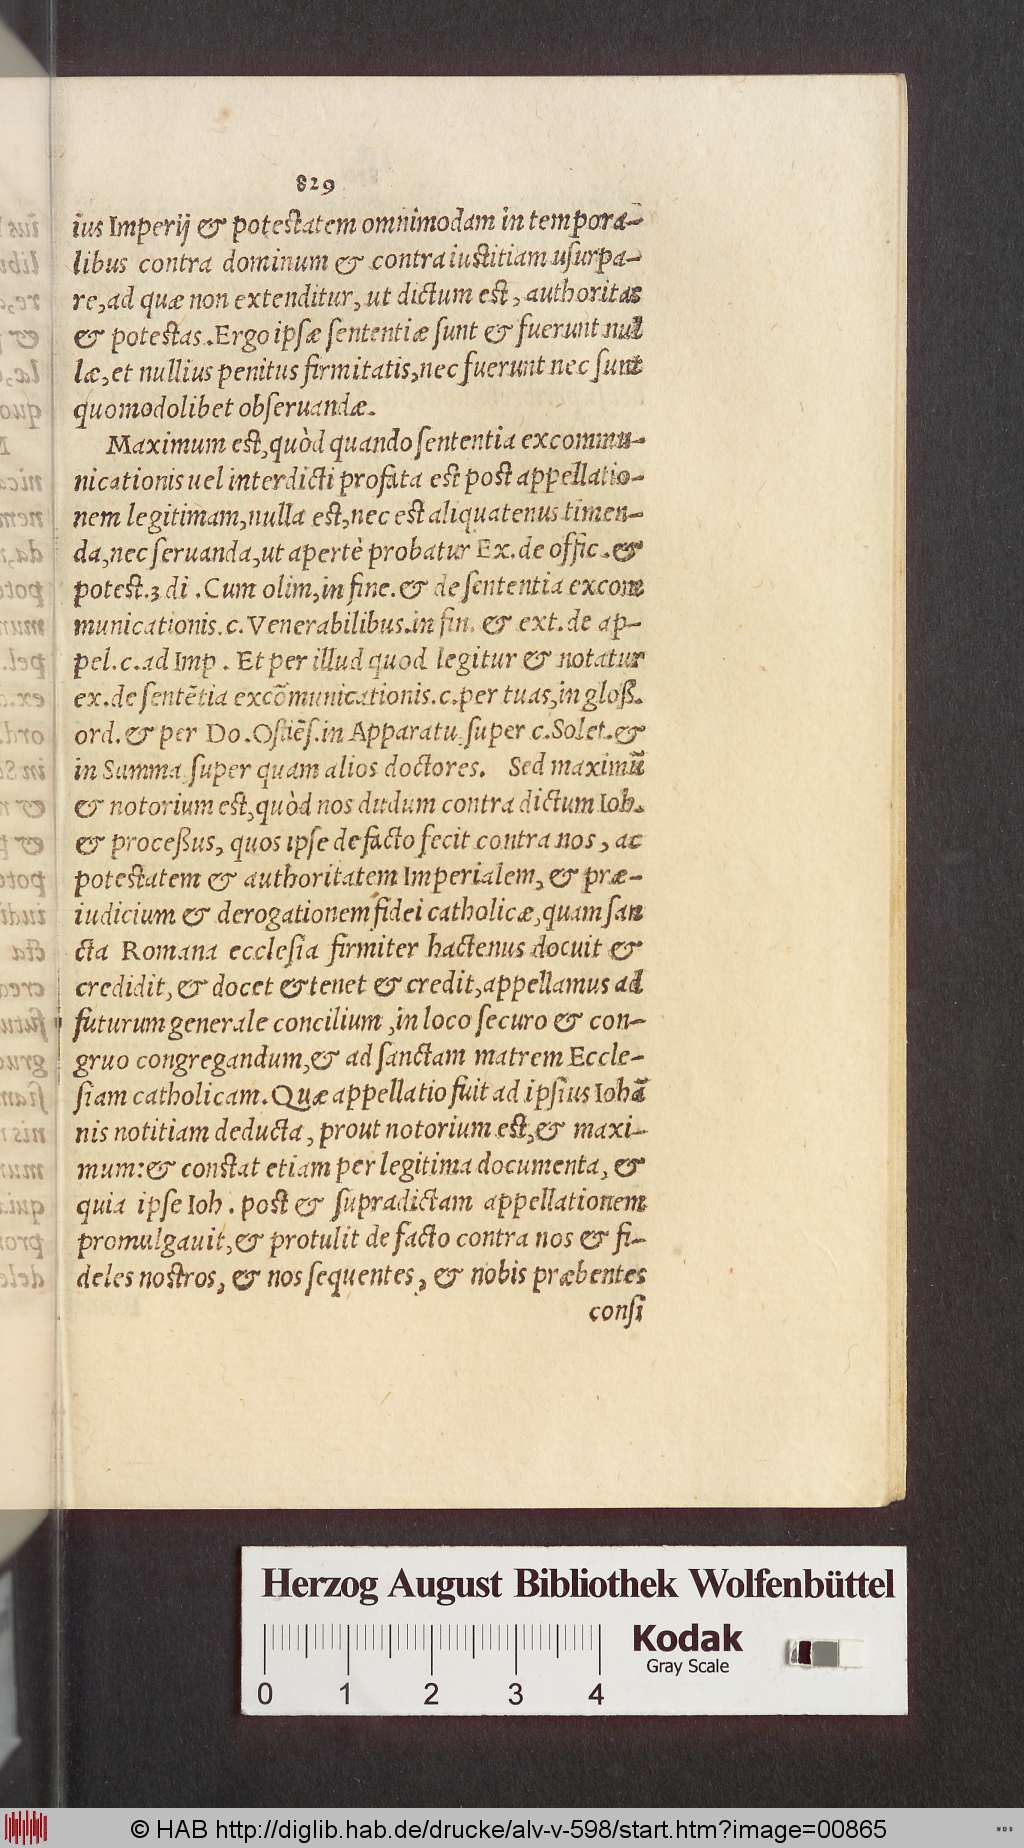 829
ius Imperij & potestatem omnimodam in tempora-
libus contra dominum & contra iustitiam usurpa-
re, ad quæ non extenditur, ut dictum est, authoritas
& potestas. Ergo ipsæ sententiæ sunt & fuerunt nul
læ, et nullius penitus firmitatis, nec fuerunt nec sunt
quomodolibet obseruandæ.
Maximum est, quòd quando sententia excommu-
nicationis uel interdicti prosata est post appellatio-
nem legitimam, nulla est, nec est aliquatenus timen-
da, nec seruanda, ut apertè probatur Ex. de offic. &
potest. 3 di. Cum olim, in fine. & de sententia excom
municationis. c. Venerabilibus. in fin. & ext. de ap-
pel. c. ad Imp. Et per illud quod legitur & notatur
ex. de sentẽtia excõmunicationis. c. per tuas, in gloß.
ord. & per Do. Ostiẽs. in Apparatu super c. Solet. &
in Summa super quam alios doctores. Sed maximũ
& notorium est, quòd nos dudum contra dictum Ioh.
& proceßus, quos ipse de facto fecit contra nos, ac
potestatem & authoritatem Imperialem, & præ-
iudicium & derogationem fidei catholicæ, quam san
cta Romana ecclesia firmiter hactenus docuit &
credidit, & docet & tenet & credit, appellamus ad
futurum generale concilium, in loco securo & con-
gruo congregandum, & ad sanctam matrem Eccle-
siam catholicam. Quæ appellatio fuit ad ipsius Iohã
nis notitiam deducta, prout notorium est, & maxi-
mum: & constat etiam per legitima documenta, &
quia ipse Ioh. post & supradictam appellationem
promulgauit, & protulit de facto contra nos & fi-
deles nostros, & nos sequentes, & nobis præbentes
consi
Herzog August Bibliothek Wolfenbüttel
Kodak
Gray Scale
0 1 2 3 4
© HAB http://diglib.hab.de/drucke/alv-v-598/start.htm?image=00865